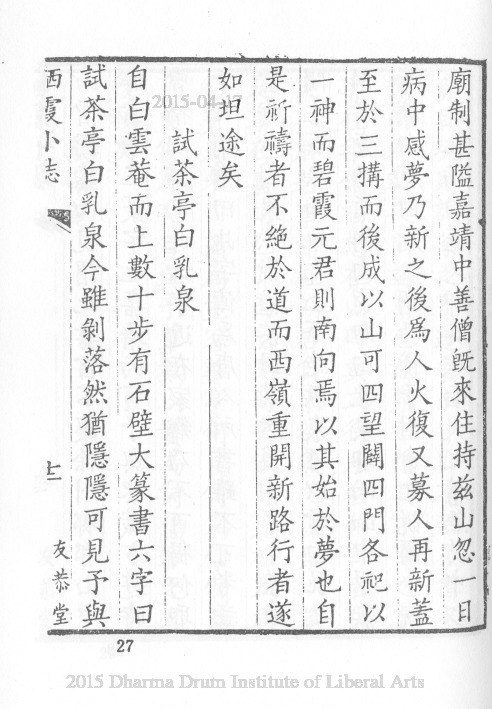 廟制甚隘嘉靖中善僧旣來住持玆山忽一日
病中感夢乃新之後爲人火復又募人再新蓋
至於三搆而後成以山可四望闢四門各祀以
一神而碧霞元君則南向焉以其始於夢也自
是祈禱者不絶於道而西嶺重開新路行者遂
如坦途矣
試茶亭白乳泉
自白雲菴而上數十步有石壁大篆書六字曰
試茶亭白乳泉今雖剝落然猶隱隱可見予與
栖霞小志
十一
友恭堂
27
2015-04-17
2015 Dharma Drum Institute of Liberal Arts